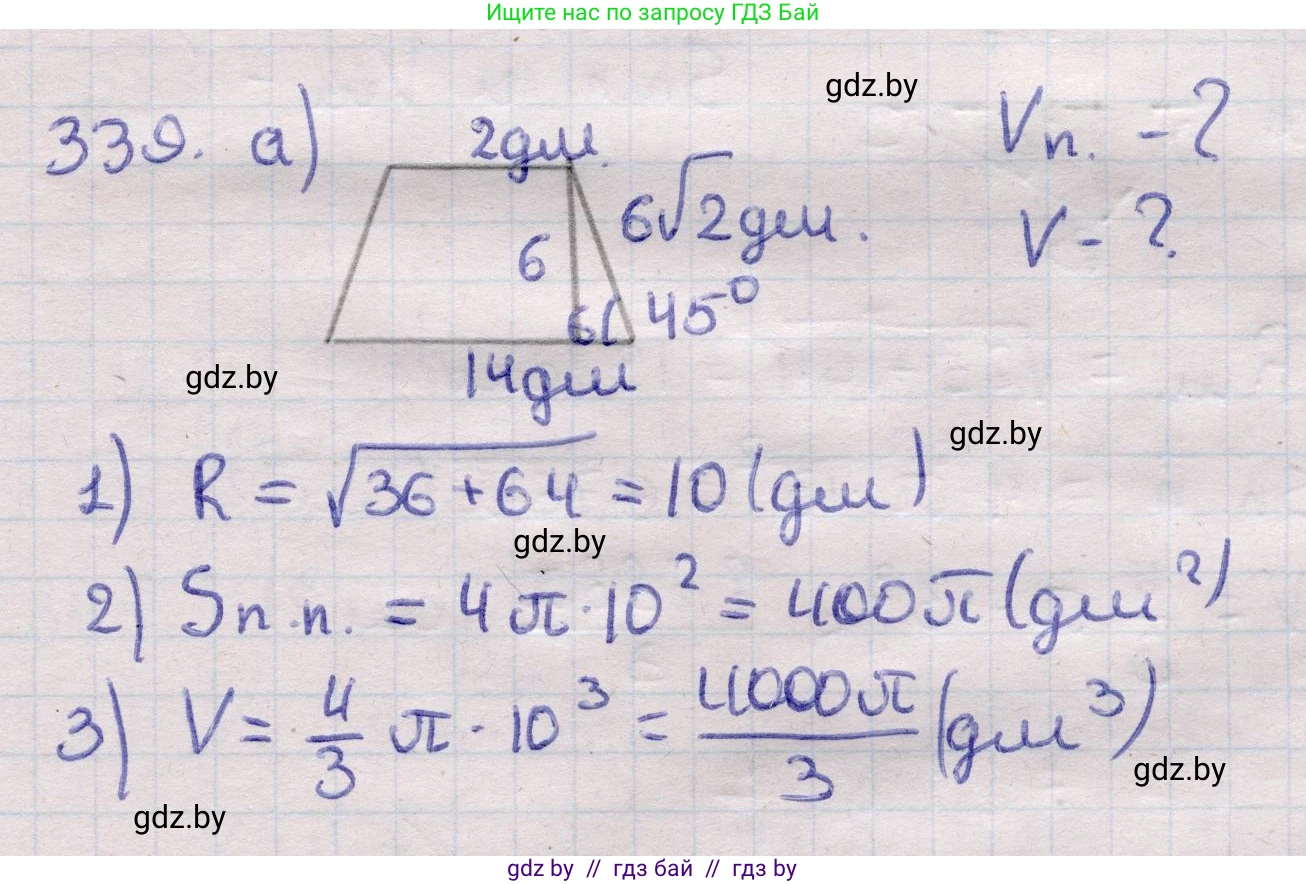 Ищите нас по запросу ГДЗ Бай
gdz.by
339. а) 2дм. Vп. - ?
6√2дм. V - ?
6
6 45°
14дм
gdz.by
gdz.by
1) R = √36+64 = 10 (дм)
gdz.by
2) Sп.п. = 4π·10² = 400π (дм²)
3) V = 4/3 π · 10³ = 4000π/3 (дм³)
gdz.by
gdz.by
gdz.by // гдз бай // гдз by